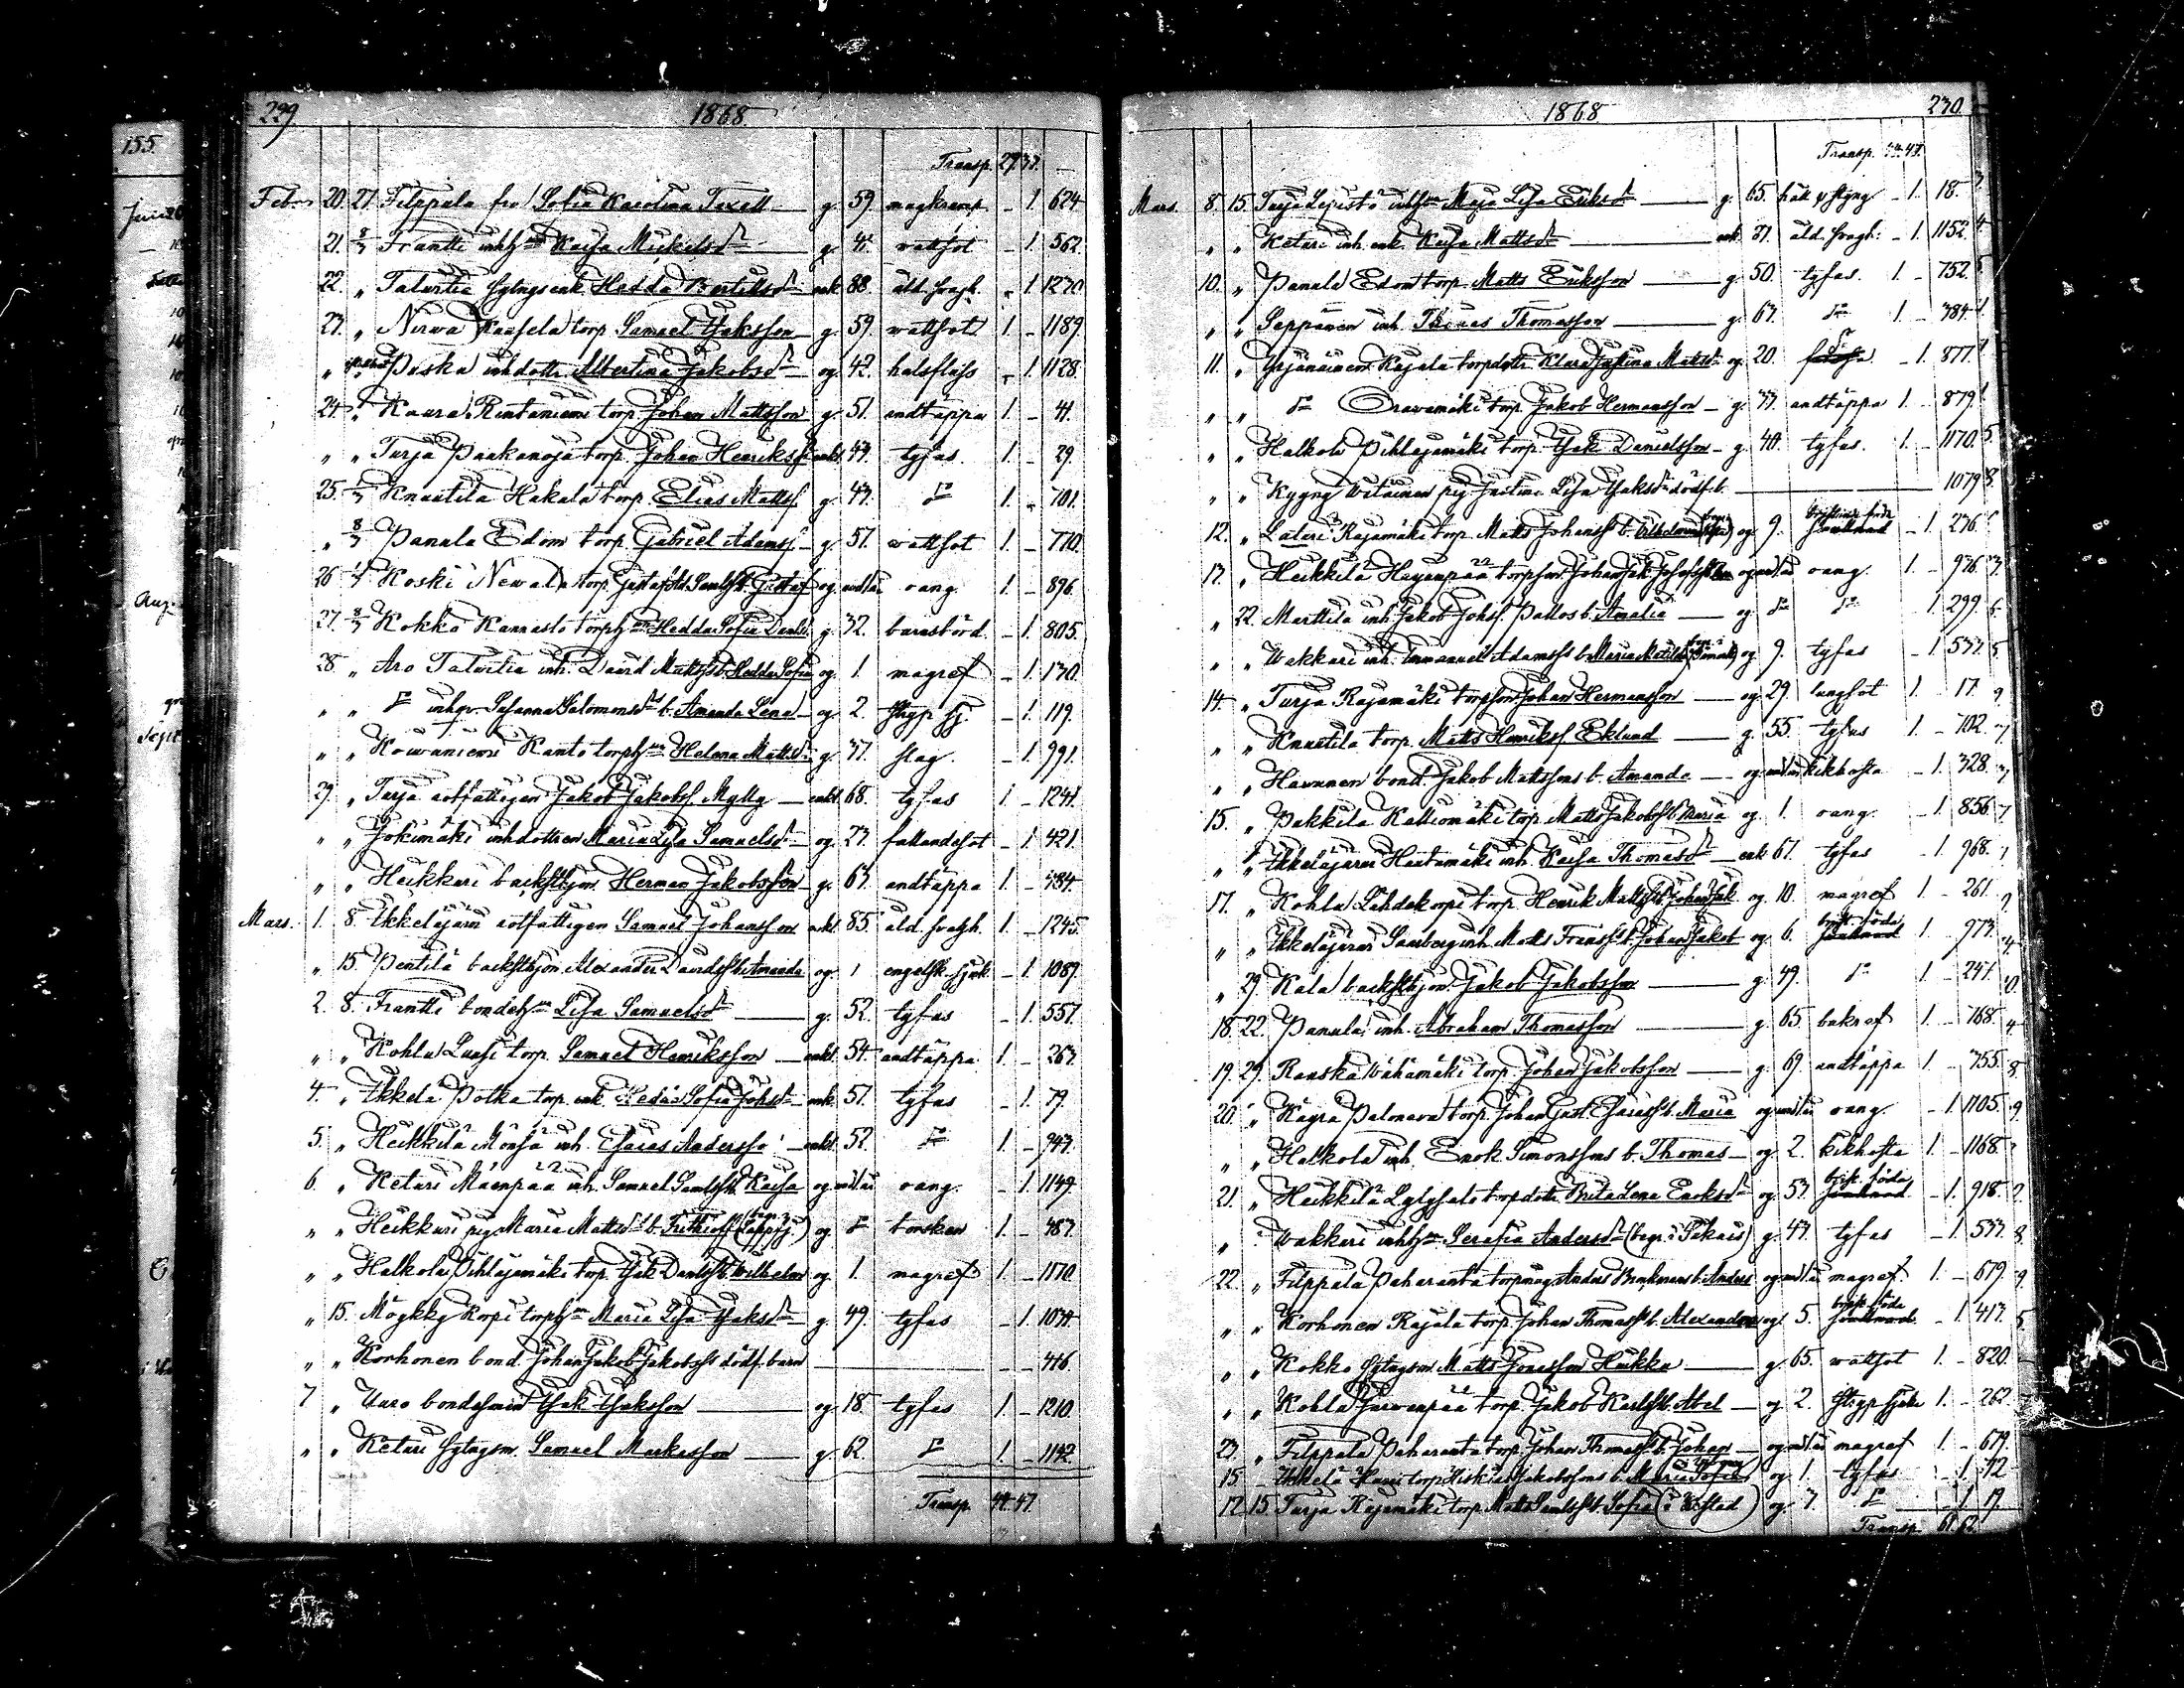 155.
229
1868.
Transp. 27 33. –
Febr. 20. 27. Filppula fru Sofia Karolina Texell g. 59. magkramp – 1. 624.
21. 8/3 Frantti inhs hru Kaisa Mickelsdr g. 41. wattsot – 1. 562.
22. " Talwitie sytngs enk. Hedda Bertilsdr enk. 88. åld. swagh. – 1. 1270.
23. " Nirwa torp. Samuel Isaksson g. 59. wattsot 1. – 1189.
" " Paska inhdottr. Albertina Jakobsdr og. 42. halsfluss – 1. 1128.
24. " Kaura Rintaniemi torp. Johan Mattsson g. 51. andtäppa 1. – 41.
" " Turja Paakanoja torp. Johan Henrikss. enkl. 44. tyfus. 1. – 29.
25. Knuutila Hakala torp. Elias Mattss. g. 43. do 1. – 701.
" 8/3 Panula Edom torp. Gabriel Adamss. g. 51. wattsot 1. – 770.
26 Koski Newala torp. Samlss. b. Gustaf og. oang. 1. – 896.
27. 8/3 Kokko Kannasto torphru Hedda Sofia g. 32. barnsbörd. – 1. 805.
28. " Aro Talwitie inh. David Mattss. b. Hedda Sofia og. 1. magref – 1. 130.
" " do inhqv. Susanna Salomonsdr b. Amanda Lena og. 2. stryp sj. – 1. 119.
" " Kowaniemi Kanto torphru Helena Mattsdr g. 37. slag. – 1. 991.
29. " Turja rotfattigen Jakob Jakobss. Mylly enkl. 68. tyfus 1. – 1241.
" " Jokimäki inhdottren Maria Lisa Samuelsdr og. 23. fallandesot – 1. 421.
" " Heikkuri backsthjon. Herman Jakobsson g. 63. andtäppa 1. – 484.
Mars. 1. 8. Ikkeläjärwi rotfattigen Samuel Johansson enkl. 85. åld. swagh. 1. – 1245.
" 15. Pentilä backsthjon. Alexander Davidss. b. Amanda og. 1 engelsk. sjuk. – 1. 1089.
2. 8. Frantti bondehru Lisa Samuelsdr g. 52. tyfus – 1. 551.
" " Kohlu Luasi torp. Samuel Henriksson enkl. 54. andtäppa 1. – 263.
4. " Ikkelä Potka torp. enk. Hedda Sofia Johsdr enk. 51. tyfus – 1. 79.
5. " Heikkilä inh. Esaias Andersso enkl. 52. do 1. – 943.
6. " Keturi Mäenpää inh. Samuel Samlss. b. Kaisa og. oang. – 1. 1149.
" " Heikkuri pig. Maria Mattsdr b. Frithiof (begr. i Lappfj.) og. do torsken 1. – 487.
" " Halkola Pihlajamäki torp. Isak Danlss. b. Wilhelm og. 1. magref 1. – 1170.
" 15. Möykky Korpi torphru Maria Lisa Isaksdr g. 49. tyfus – 1. 1034.
" " Korhonen bond. Johan Jakob Jakobss. dödf. barn – – 416.
7 " Uuro bondesonen Isak Isaksson og. 18. tyfus 1. – 1210.
" " Keturi sytngsm. Samuel Markusson g. 62. do 1. – 1142.
Transp. 44. 47.
1868
230.
Transp. 44. 47.
Mars. 8. 15. Turja Lepistö inhhru Maja Lisa Eriksdr g. 65. håll o. styng – 1. 18.
" " Keturi inh. enk. Kaisa Mattsdr enk. 81. åld. swagh. – 1. 1152.
10. " Panula Edom torp. Matts Eriksson g. 50. tyfus. 1. – 752.
" " Seppänen inh. Thomas Thomasson g. 63. do 1. – 384.
11. " Yrjänäinen Rajala torpdottr. Klara Justina Mattsdr og. 20. do – 1. 877.
" " do Orawamäki torp. Jakob Hermansson g. 33. andtäppa 1. – 879.
" " Halkola Pihlajamäki torp. Isak Danielsson g. 40. tyfus. 1. – 1170.
" " Kyyny pig. Justina Lisa Isaksdr dödf. b. 1079
12. " Luteri Rajamäki torp. Matts Johanss. b. og. 9. bristande föda – 1. 276.
13. " Heikkilä Hayanpää torpson. Johan Isak Josefss. og. oang. 1. – 976.
" 22. Marttila inh. Jakob Johss. Pallos b. Amalia og. do do 1. 299.
" " Wakkuri inh. Immanuel Adamss. b. Maria Matilda og. 9. tyfus – 1. 533.
14. " Turja Rajamäki torpson Johan Hermansson og. 29. lungsot 1. – 17.
" " Knuutila torp. Matts Henrikss. Eklund g. 55. tyfus 1. – 702.
" " Havunen bond. Jakob Mattssons b. Amanda og. kikhosta – 1. 328.
15. " Pukkila Kalliomäki torp. Matts Jakobss. b. Maria og. 1. oang. – 1. 856.
" " Ikkeläjärwi Hautamäki inh. Kaisa Thomasdr enk. 61. tyfus – 1. 968.
17. " Kohlu Lähdekorpi torp. Henrik Mattss. b. Johan Isak og. 10. magref 1. – 261.
" " Ikkeläjärwi inh. Matts Franss. b. Johan Jakob og. 6. brist. föda 1. – 973.
" 29. Kala backsthjon Jakob Jakobsson g. 49. do 1. – 247.
18. 22. Panula inh. Abraham Thomasson g. 65. bukref 1. – 768.
19. 29. Ranska Wähämäki torp. Johan Jakobsson g. 69. andtäppa 1. – 355.
20. " Palomaa torp. Johan Gust. Esaiass. b. Maria og. oang. – 1. 1105.
" " Halkola inh. Enok Simonssons b. Thomas og. 2. kikhosta 1. – 1168.
21. " Heikkilä Lylysalo torpdottr. Brita Lena Enoksdr og. 53. brist. föda – 1. 918.
" " Wakkuri inhhru Serafia Andersdr (begr. i Sikais) g. 43. tyfus – 1. 533.
22. " Filppula Paharanta torpmåg Anders b. Anders og. magref. 1. – 679.
" " Korhonen Rajala torp. Johan Thomass. b. Alexandra og. 5. brist. föda – 1. 413.
" " Kokko sytngsm. Matts Jonasson Heikku g. 65. wattsot 1. – 820.
" " Kohlu Järwenpää torp. Jakob Karlss. b. Abel og. 2. stryp sjuka 1. – 262.
23. " Filppula Paharanta torp. Johan Thomass. b. Johan og. magref 1. – 679.
15 – Ikkelä Harri torp. Jakobssons b. Maria Sofia og. 1. tyfus – 1. 72
12 15. Turja Rajamäki torp. Matts Samlss. b. Sofia og. 7. do – 1. 17.
Transp. 61. 62.